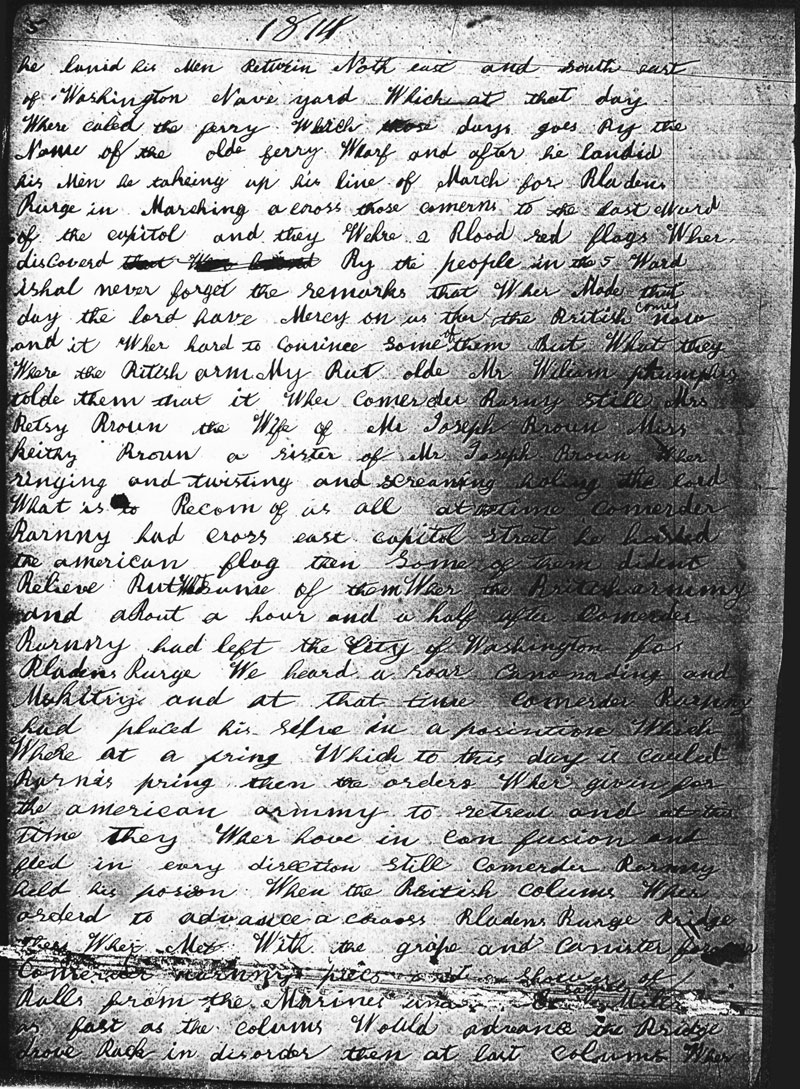 1814
he lanid his Men Betwein Noth east and South east
of Washington Nave yard Which at that day
Where caled the ferry Which those days goes By the
Name of the olde ferry Wharf and after he landid
his Men he takeing up his line of March for Bladens
Burge in Marching a cross those comerns to the East Ward
of the capitol and they Wehre 2 Blood red flags Wher
discoverd that Was By the people in the 5 Ward
ishal never forget the remarks that Wher Made that
day the lord have Mercy on us thar the British comin now
and it Wher hard to convince some of them But What they
Where the Bitish arm My But olde Mr Wiliam
tolde them that it Wher Comerder Barny still Mrs
Betsy Broun the Wife of Mr Joseph Broun Miss
Keithy Broun a sister of Mr Joseph Broun Wher
ringing and twisting and screaming holing the lord
What is to Becom of us all at time Comerder
Barnny had cross east capitol street he
the american flag then Some of them dident
Believe But of them Wher the British armmy
and aBout a hour and a half after Comerder
Barnny had left the City of Washington for
Bladens Burge We heard a roar Canonading and
Muskitry and at that time Comerder Barnny
had placed his selve in a posintion Which
Where at a pring Which to this day is cauled
Barnis pring then the orders Wher given for
the american armmy to retreat and at the
time they Wher hove in Con fusion and
fled in evry direction still Comerder Barnny
held his posion When the British Colums Wher
orderd to advance a coross Bladens Burge Bridge
they Wher Met With the grape and Canister from
Comerder Barnnys piecs and a Shower of
Balls from the Marines
as fast as the colums Would advance the Bridge
drove Back in disorder then at last Colums Wher